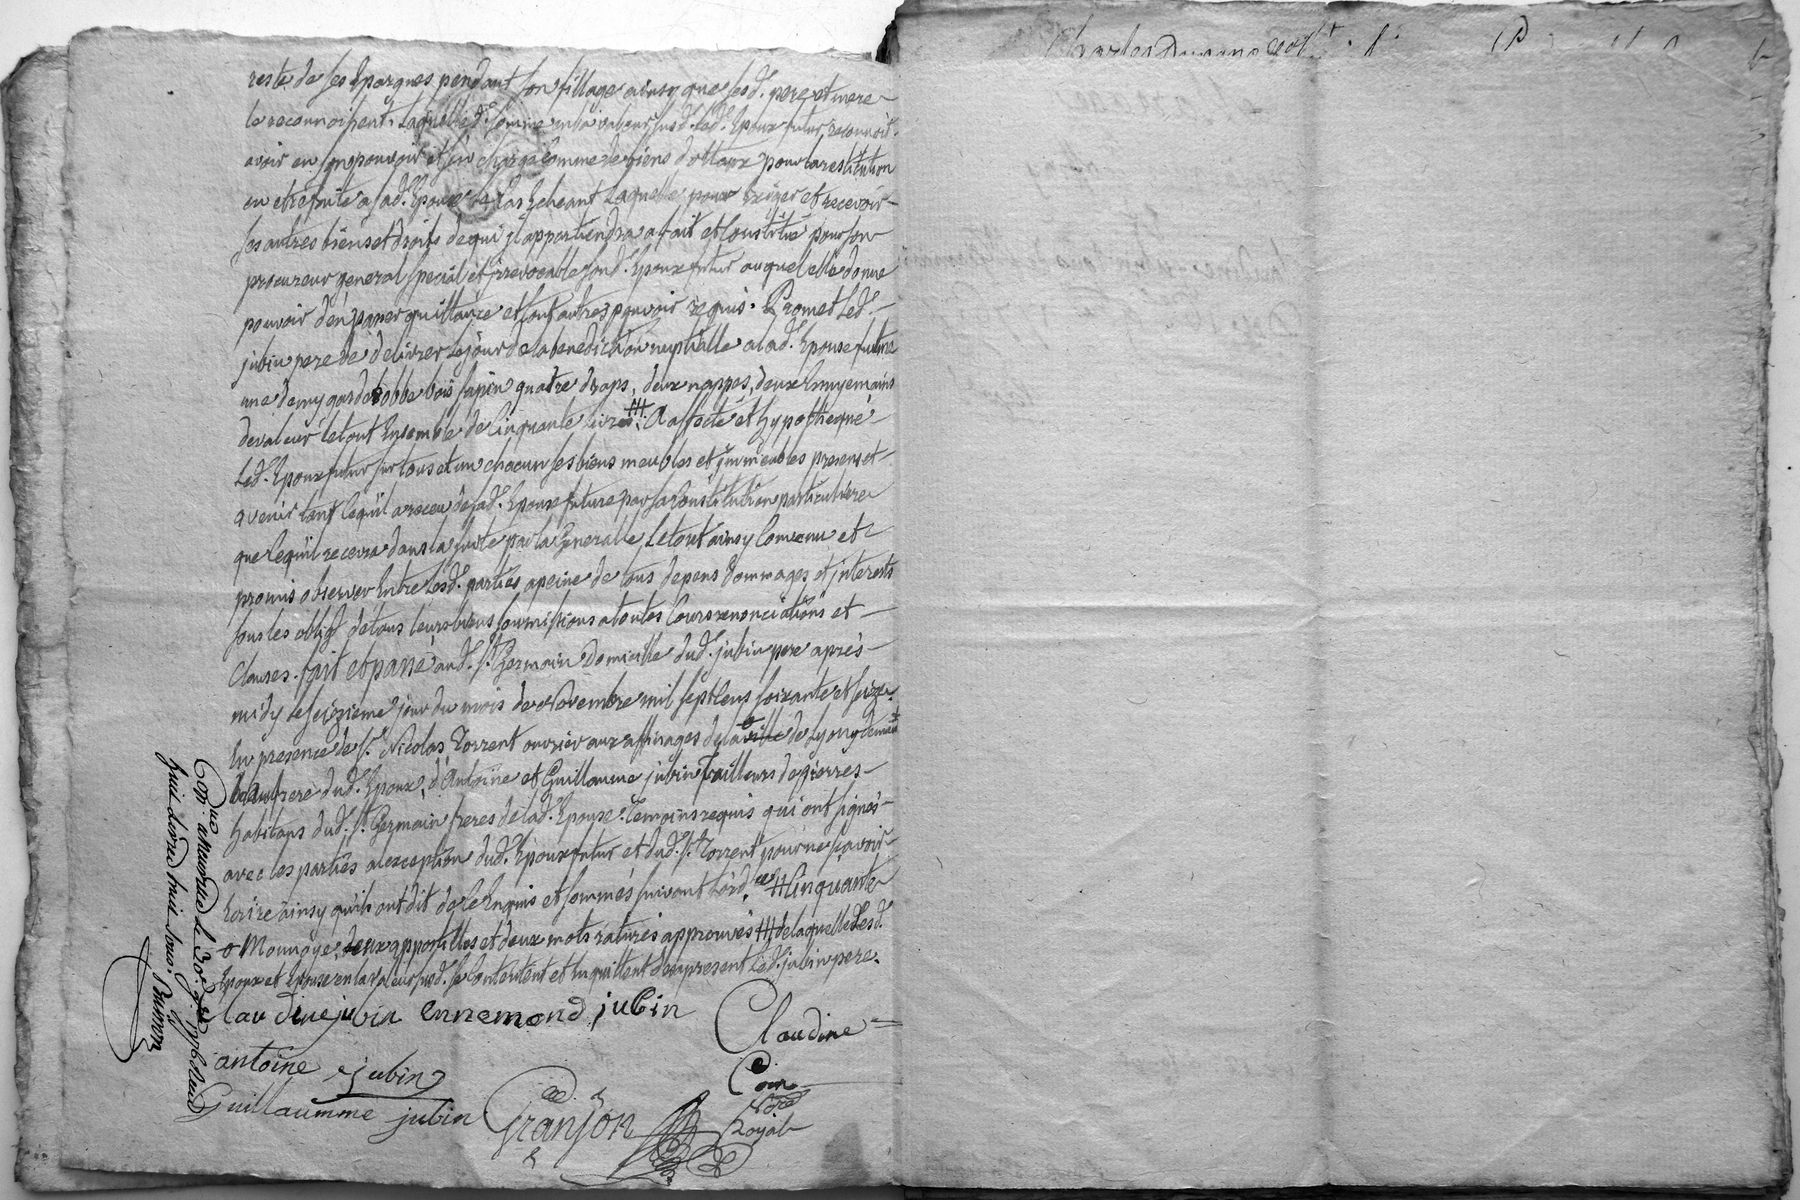 reste de ses Epargnes pendant son fillage ainsy que lesd. pere et mere
le reconnoissent. Laquelle d. somme en la valeur susd. led. Epoux futur reconnoit
avoir en son pouvoir et s'en charge comme de biens dottaux pour la restitution
en etre faite a lad. Epouse le cas Echeant Laquelle pour Exiger et recevoir
ses autres biens et droits de qui jl appartiendra a fait et Constitué pour son
procureur general special et irrevocable sond. Epoux futur auquel elle donne
pouvoir d'en passer quittance et tout autres pouvoir requis. Promet Led.
jubin pere de delivrer Le jour de la benediction nuptialle a lad. Epouse future
une demy garderobbe bois sapin quatre draps, deux nappes, deux Essuyemains
de valeur le tout Ensemble de Cinquante livres ##. A affecté et hypothequé
Led. Epoux futur sur tous et un chacun ses biens meubles et jmmeubles presens et
avenir tant ce qu'il a receu de sad. Epouse future par sa Constitution particuliere
que ce qu'il recevra dans la suite par la Generalle Le tout ainsy Convenu et
promis observer Entre Lesd. parties apeine de tous depens dommages et jnterests
sous les obligⁿ de tous leurs biens soumissions a toutes Cours renonciations et
Clauses. fait et passé aud. Sᵗ Germain Domicille dud. jubin pere après
midy le seizieme jour du mois de Novembre mil sept Cens soixante et seize
En presence de Sʳ Nicolas Torrent ouvrier aux affinages de la ville de Lyon y demᵗ
beaufrere dud. Epoux, d'Antoine et Guillaume jubin Tailleurs de pierres
habitans dud. Sᵗ Germain freres de lad. Epouse. Temoins requis qui ont signés
avec les parties a l'exception dud. Epoux futur et dud. Sʳ Torrent pour ne sçavoir
Ecrire ainsy qu'ils ont dit de ce Enquis et sommés suivant L'ordᶜᵉ # Cinquante
o Monnoye, deux appostilles et deux mots raturés approuvés ## de laquelle Lesd.
Epoux et Epouse en la valeur susd. se Contentent et En quittent d'en present Led. jubin pere.
Claudine jubin ennemond jubin
Claudine
Coin
antoine jubin
Guillaumme jubin
Granjon
Nʳᵉ
Royal